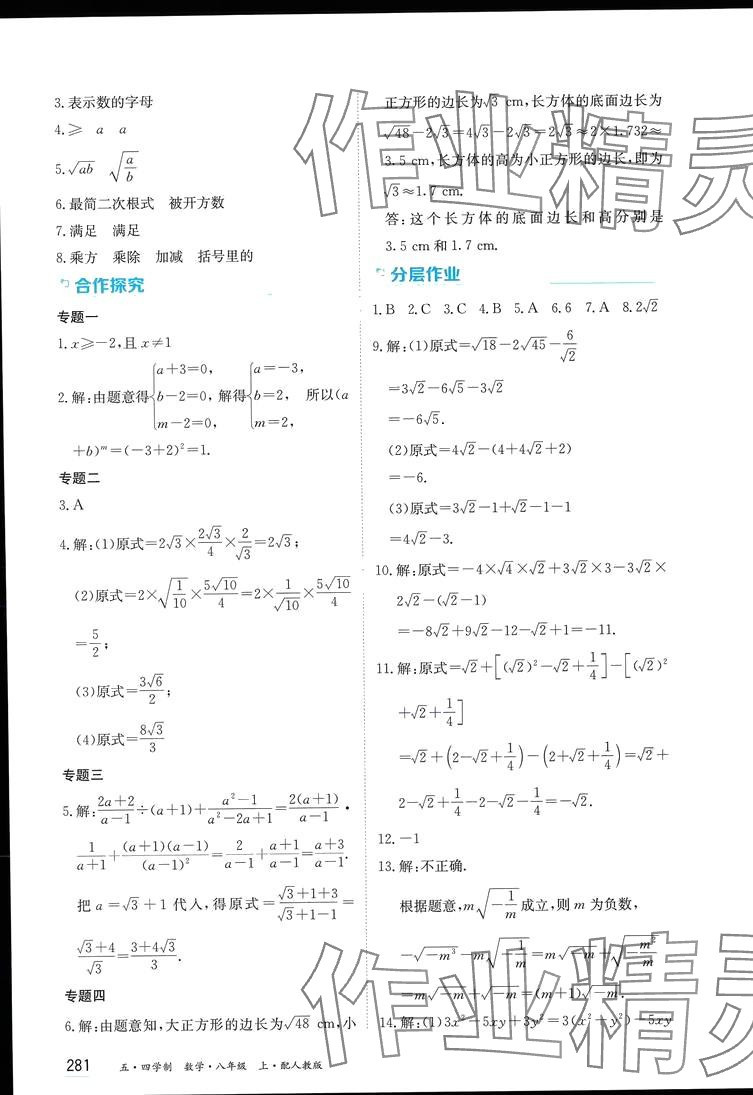 3.表示数的字母
4.⩾ a a
5.√(ab) √(a/b)
6.最简二次根式 被开方数
7.满足 满足
8.乘方 乘除 加减 括号里的
合作探究
专题一
1.x⩾-2,且x≠1
2.解:由题意得{a+3=0, b-2=0, m-2=0, 解得{a=-3, b=2, m=2, 所以(a
+b)^m=(-3+2)²=1.
专题二
3.A
4.解:(1)原式=2√3×(2√3)/4×2/√3=2√3;
(2)原式=2×√(1/10)×(5√10)/4=2×1/√10×(5√10)/4
=5/2;
(3)原式=(3√6)/2;
(4)原式=(8√3)/3
专题三
5.解:(2a+2)/(a-1)÷(a+1)+(a²-1)/(a²-2a+1)=2(a+1)/(a-1)·
1/(a+1)+(a+1)(a-1)/(a-1)²=2/(a-1)+(a+1)/(a-1)=(a+3)/(a-1).
把a=√3+1代人,得原式=(√3+1+3)/(√3+1-1)=
(√3+4)/√3=(3+4√3)/3.
专题四
6.解:由题意知,大正方形的边长为√48 cm,小
281 五·四学制 数学·八年级 上·配人教版
正方形的边长为√3 cm,长方体的底面边长为
√48-2√3=4√3-2√3=2√3≈2×1.732≈
3.5 cm,长方体的高为小正方形的边长,即为
√3≈1.7 cm.
答:这个长方体的底面边长和高分别是
3.5 cm和1.7 cm.
分层作业
1.B 2.C 3.C 4.B 5.A 6.6 7.A 8.2√2
9.解:(1)原式=√18-2√45-6/√2
=3√2-6√5-3√2
=-6√5.
(2)原式=4√2-(4+4√2+2)
=-6.
(3)原式=3√2-1+√2-1-1
=4√2-3.
10.解:原式=-4×√4×√2+3√2×3-3√2×
2√2-(√2-1)
=-8√2+9√2-12-√2+1=-11.
11.解:原式=√2+[(√2)²-√2+1/4]-[(√2)²
+√2+1/4]
=√2+(2-√2+1/4)-(2+√2+1/4)=√2+
2-√2+1/4-2-√2-1/4=-√2.
12.-1
13.解:不正确.
根据题意,m√(-1/m)成立,则m为负数,
-√(-m³)-m√(-1/m)=m√-m+√(-m²/m)
=m√-m+√-m=(m+1)√-m.
14.解:(1)3x²-5xy+3y²=3(x²+y²)-5xy
作业精灵
作业精灵